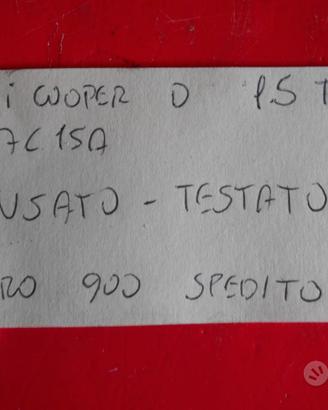 i COOPER D 1.5 T
7C15A
USATO - TESTATO
RO 900 SPEDITO